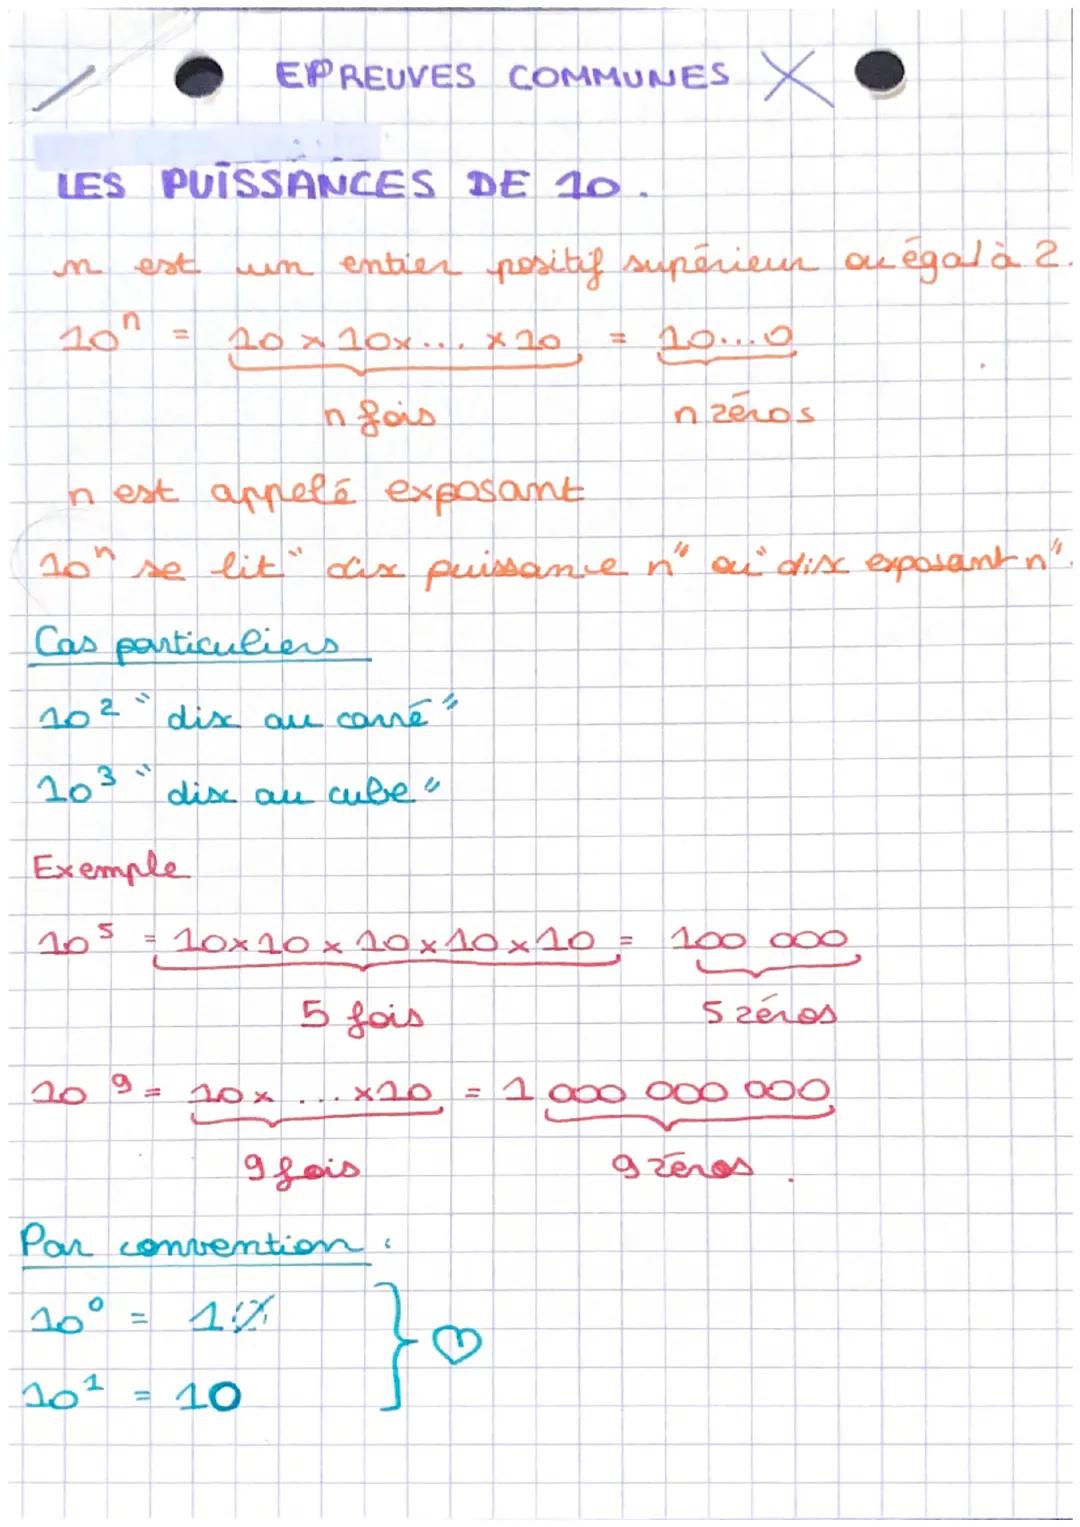 EPREUVES COMMUNES
LES PUISSANCES DE 10.
n est un entier positif supérieur ou égal à 2.
10ⁿ = 10 × 10 × ... × 10 = 10...0
n fois n zéros
n est appelé exposant
10ⁿ se lit " dix puissance n" ou "dix exposant n".
Cas particuliers
10² " dix au carré "
10³ " dix au cube "
Exemple
10⁵ = 10 × 10 × 10 × 10 × 10 = 100 000
5 fois 5 zéros
10⁹ = 10 × ... × 10 = 1 000 000 000
9 fois 9 zéros.
Par convention :
10⁰ = 1
10¹ = 10